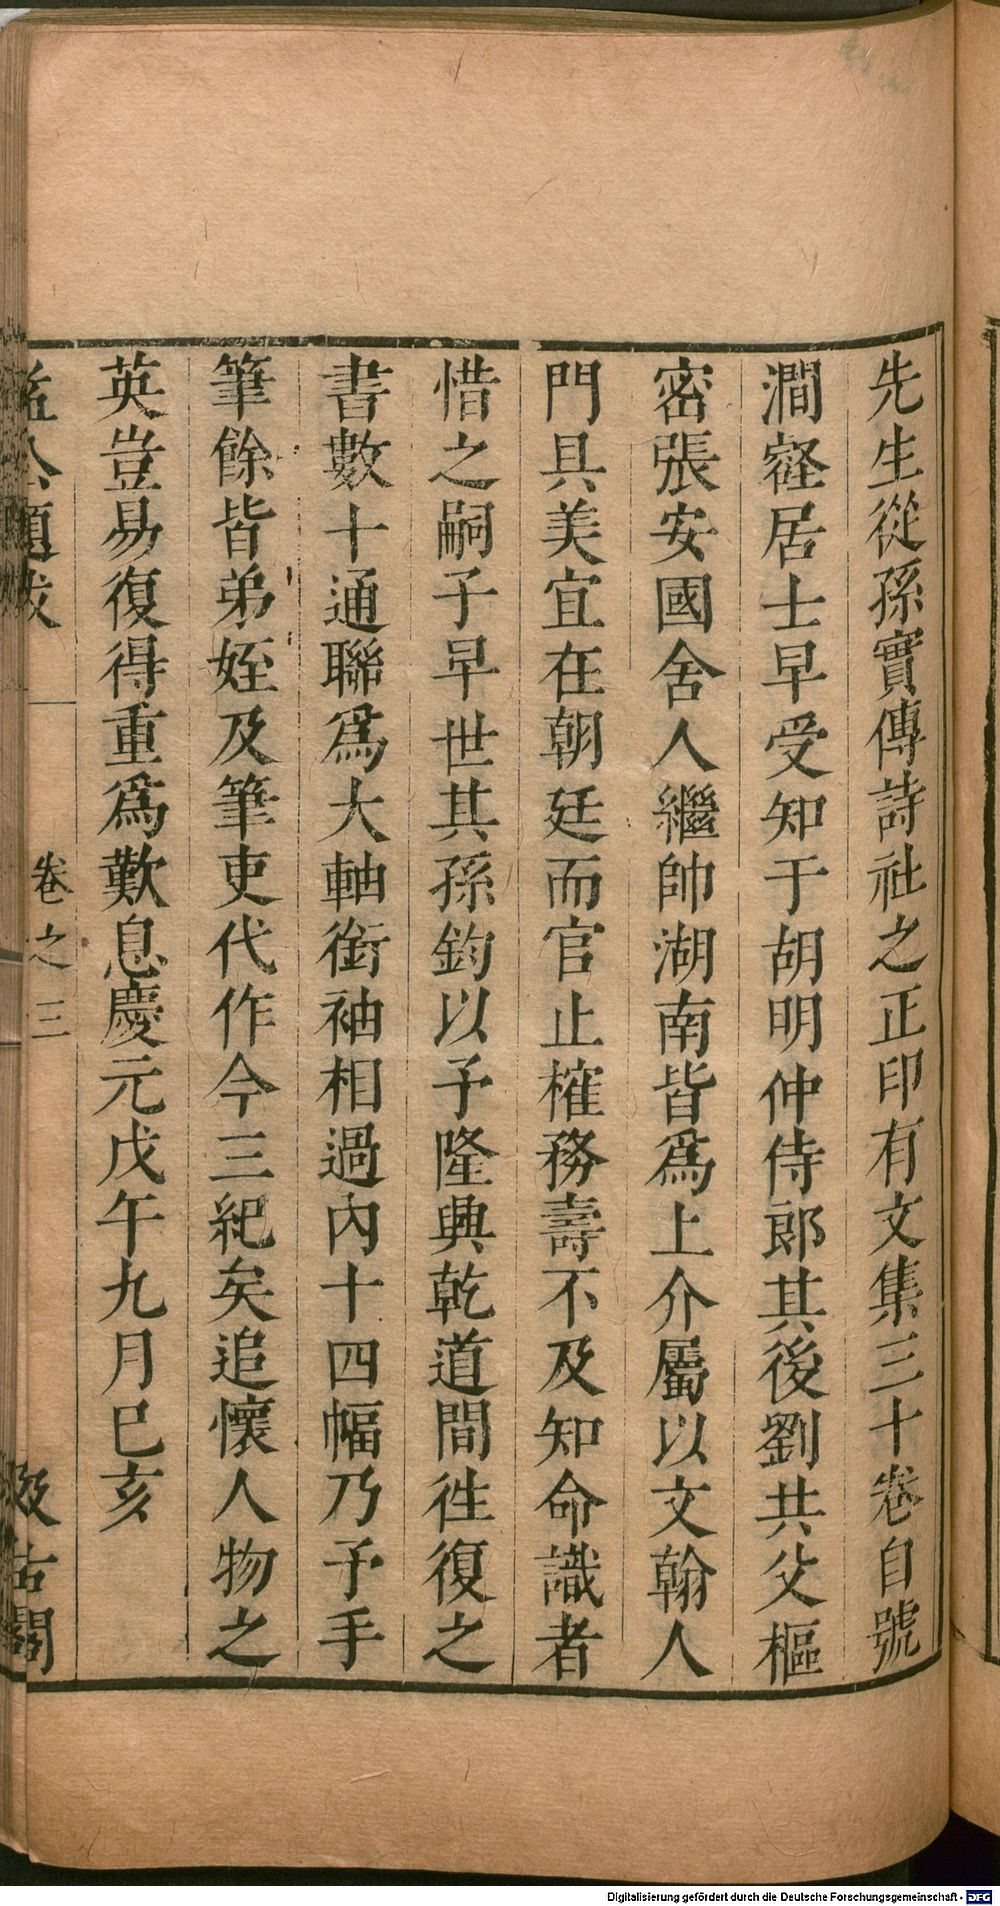 先生從孫實傳詩社之正印有文集三十卷自號
澗壑居士早受知于胡明仲侍郎其後劉共父樞
密張安國舍人繼帥湖南皆爲上介屬以文翰人
門具美宜在朝廷而官止榷務壽不及知命識者
惜之嗣子早世其孫鈞以予隆興乾道間徃復之
書數十通聯爲大軸銜袖相過內十四幅乃予手
筆餘皆弟姪及筆吏代作今三紀矣追懷人物之
英豈易復得重爲歎息慶元戊午九月巳亥
益公題跋 卷之三 汲古閣
Digitalisierung gefördert durch die Deutsche Forschungsgemeinschaft - DFG